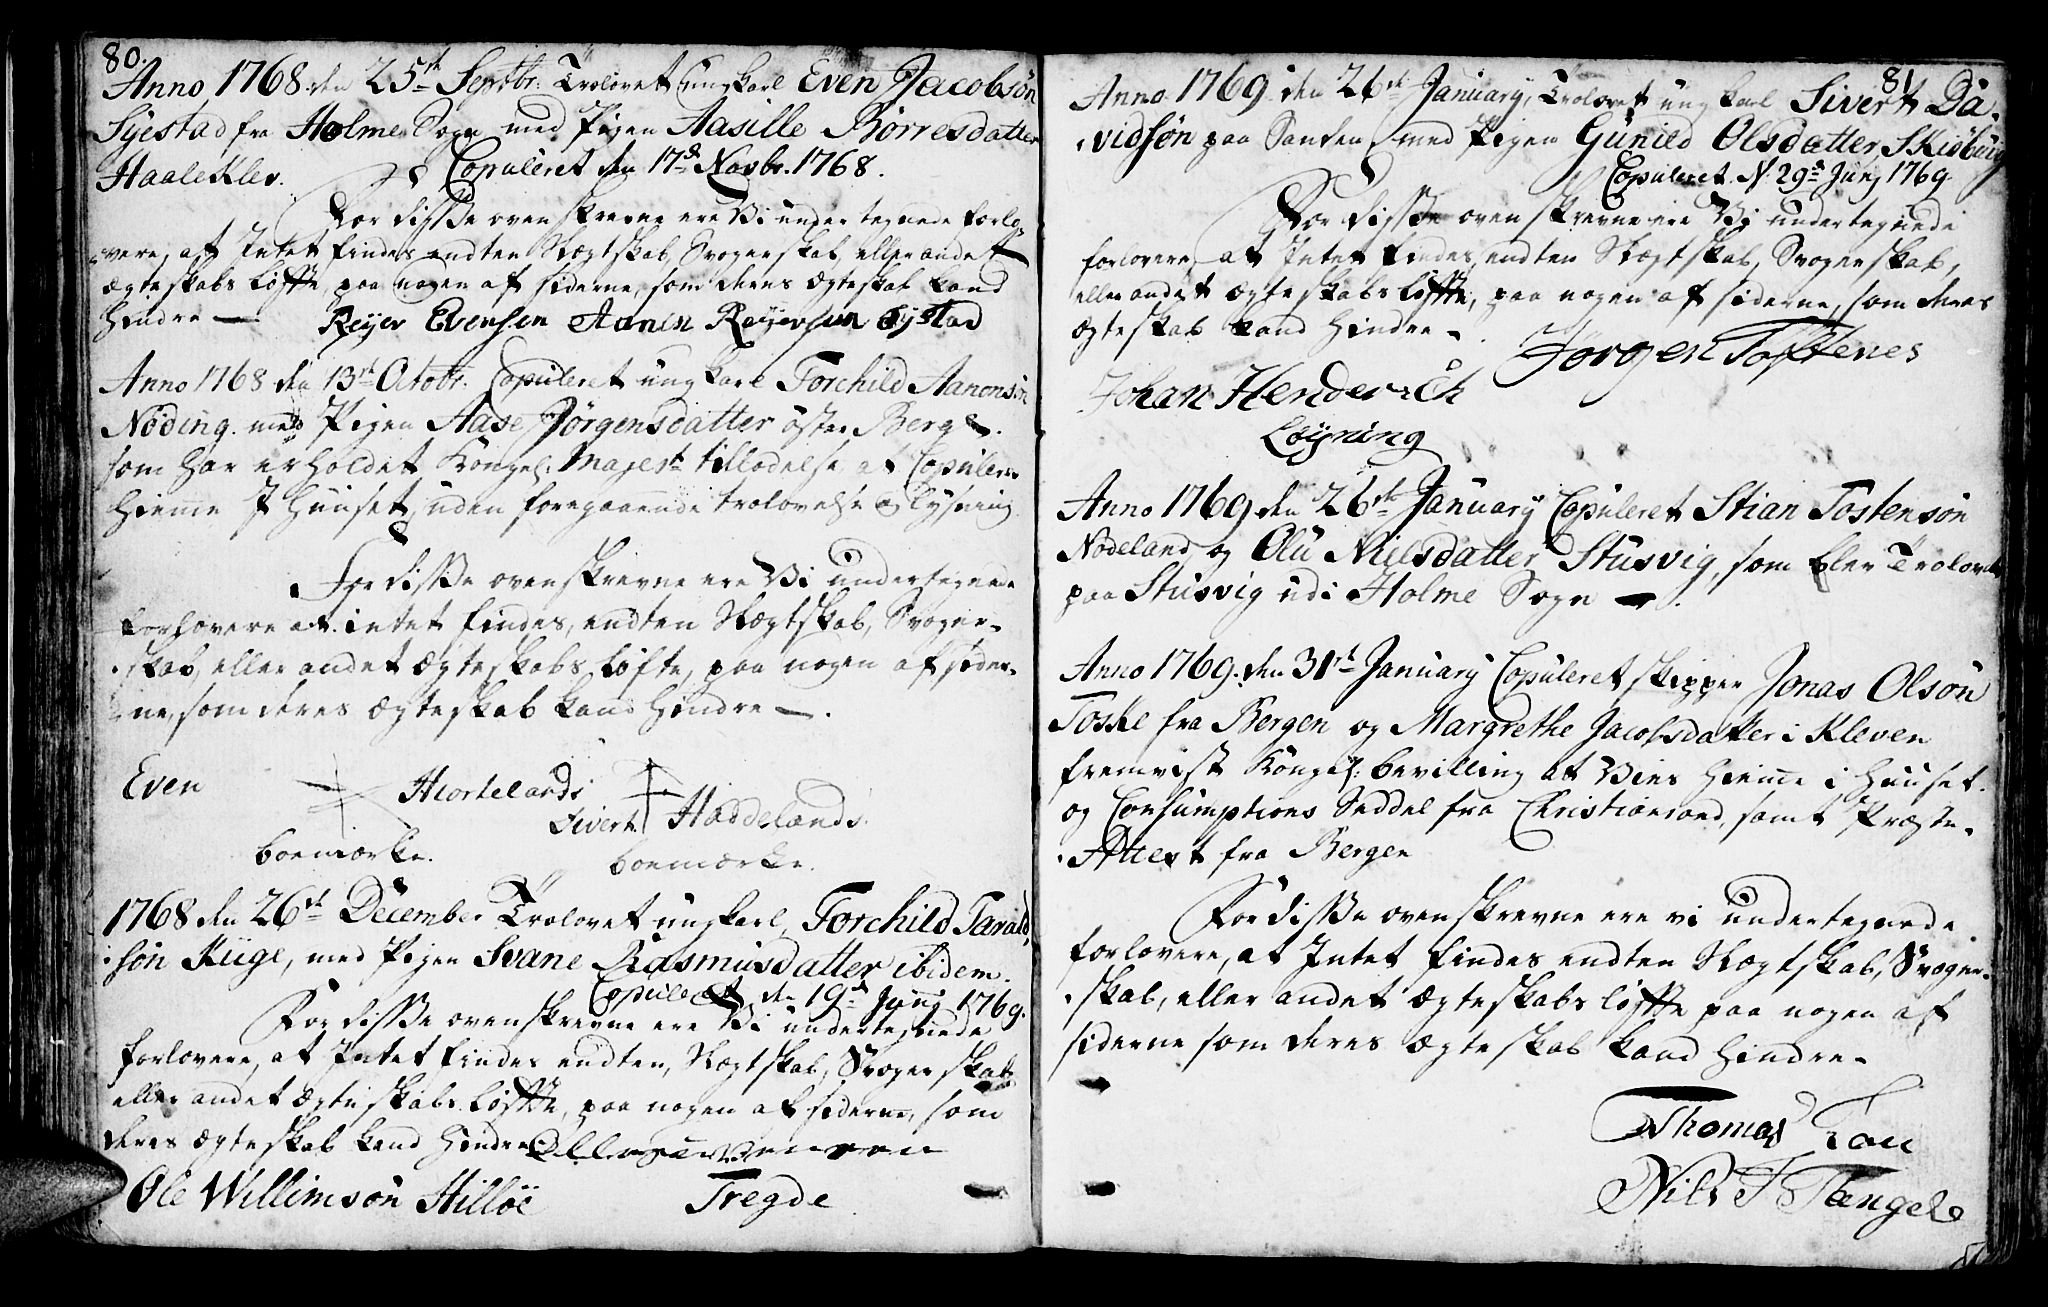 80.
Anno 1768. den 25de Septbr. Trolovet ungkarl Even Jacobsön
Syestad fra Holme Sogn med Pigen Aasille Börresdatter
Haaleklev. Copuleret den 17de Novbr. 1768.
For disse ovenskrevne ere Vi undertegnede forlo-
vere, at Intet findes endten Slægtskab, Svogerskab, eller andet
ægteskabs løffte, paa nogen af siderne, som deres ægteskab kand
hindre — Reyer Evensen Aanen Reyersen Systad
Anno 1768 den 13de Octobr. Copuleret ungkarl Torchild Aanonsön
Nöding. med Pigen Aase Jörgensdatter öster Berge.
som har erholdet Kongel: Majest: tilladelse at Copuleres
hieme I Huuset, uden foregaaende trolovelse og lysning
For disse ovenskrevne ere Vi undertegnede
forlovere at intet findes, endten Slægtskab, Svoger-
skab, eller andet ægteskabs løfte, paa nogen af sider-
ne, som deres ægteskab kand hindre —.
Even Hiortelands
Sivert Haddelands
boemærke. boemærke.
1768 den 26de December Trolovet ungkarl, Torchild Tarald
sön Küge, med Pigen Svane Rasmusdatter ibidem.
Copuleret den 19de Junij 1769.
For disse ovenskrevne ere Vi undertegnede
forlovere, at Intet findes endten, Slægtskab, Svogerskab
eller andet ægteskabs løffte, paa nogen af siderne, som
deres ægteskab kand hindre.
Ole Willimsön Hilløe Tregde
81
Anno 1769 den 26de January, Trolovet ungkarl Sivert Da-
vidsön paa Sanden med Pigen Gunild Olsdatter Skiöbuig
Copuleret d. 29de Junj 1769.
For disse ovenskrevne ere Vi undertegnede
forlovere, at Intet findes, endten Slægtskab, Svogerskab,
eller andet ægteskabs løffte, paa nogen af siderne, som deres
ægteskab kand hindre.
Jörgen Tofftenes
Johan Henderich
Löyning
Anno 1769 den 26de January Copuleret Stian Tostensön
Nodeland og Olu Nielsdatter Stusvig, som blev Trolovet
paa Stusvig udi Holme Sogn —.
Anno 1769. den 31de January Copuleret skipper Jonas Olsön
Toske fra Bergen og Margrethe Jacobsdatter i Kleven
fremvist Kongel: bevilling at Vies hieme i Huuset.
og Consumptions Seddel fra Christiansand, samt Præste-
Attest fra Bergen
For disse ovenskrevne ere vi undertegnede
forlovere, at Intet findes endten Slægtskab, Svoger-
skab, eller andet ægteskabs løffte paa nogen af
siderne som deres ægteskab kand hindre.
Thomas Lou
Nils T Tængel